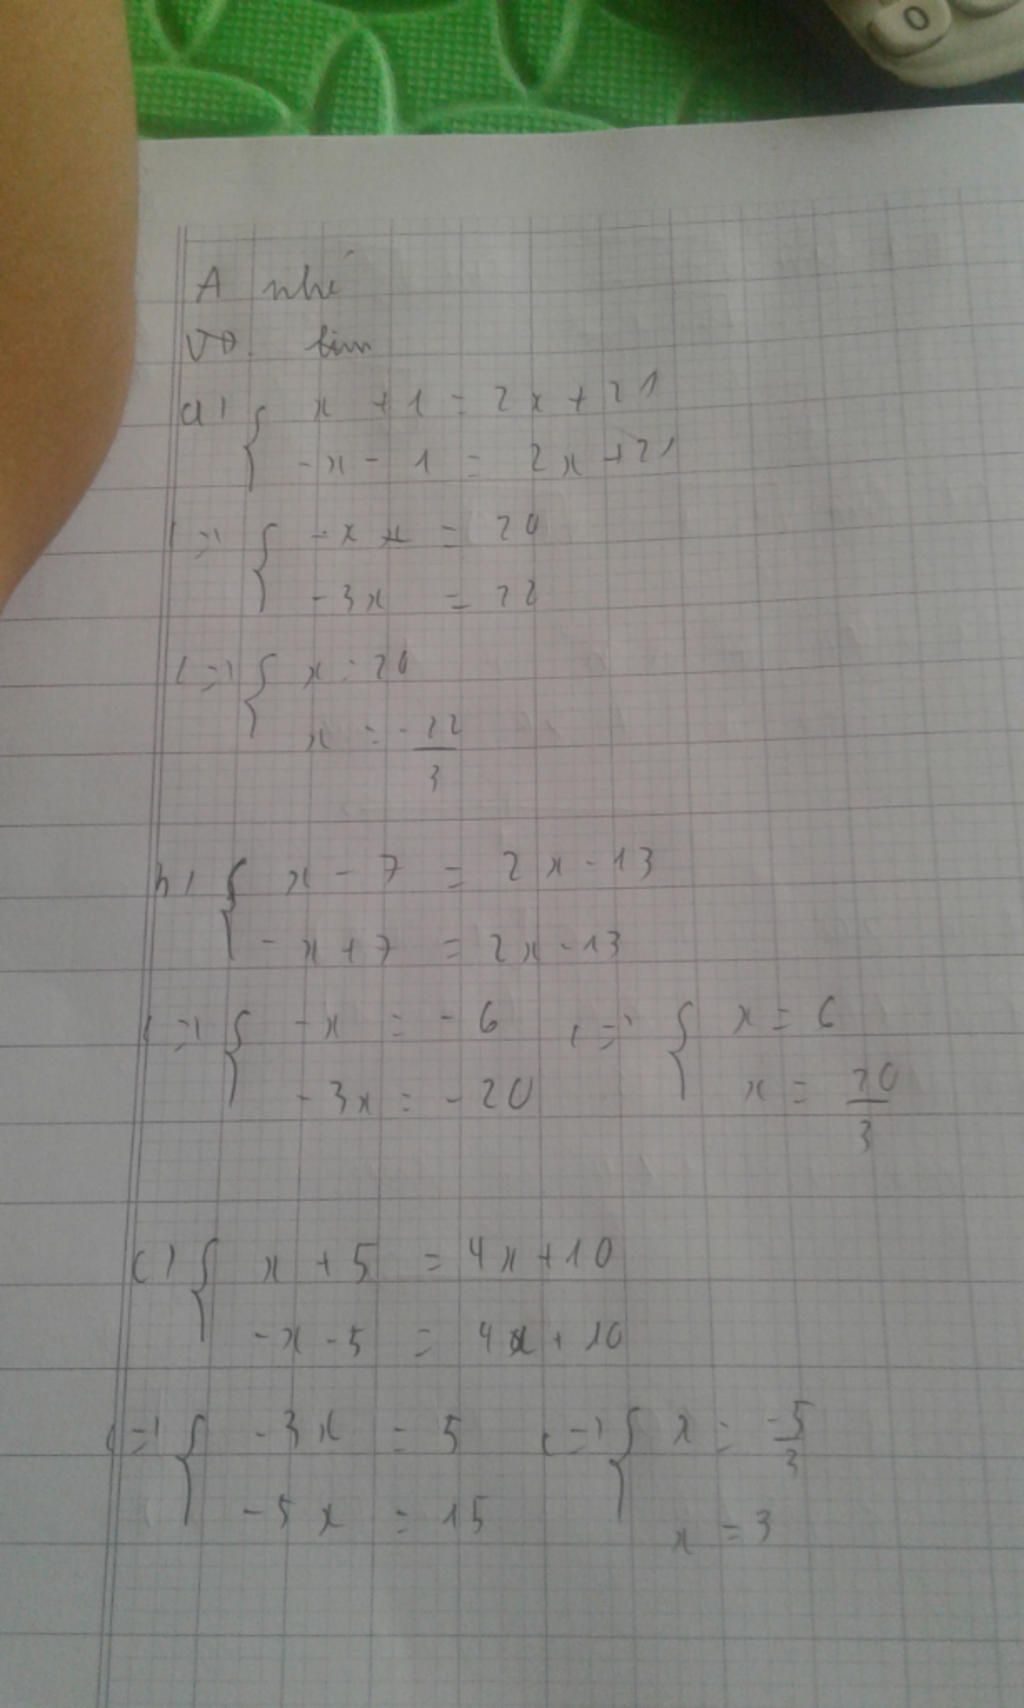 0
A nhé
a) { x + 1 = 2x + 21
-x - 1 = 2x + 21
<=> { -x = 20
-3x = 22
<=> { x = 20
x = -22/3
b) { x - 7 = 2x - 13
-x + 7 = 2x - 13
<=> { -x = -6 <=> { x = 6
-3x = -20 x = 20/3
c) { x + 5 = 4x + 10
-x - 5 = 4x + 10
<=> { -3x = 5 <=> { x = -5/3
-5x = 15 x = 3